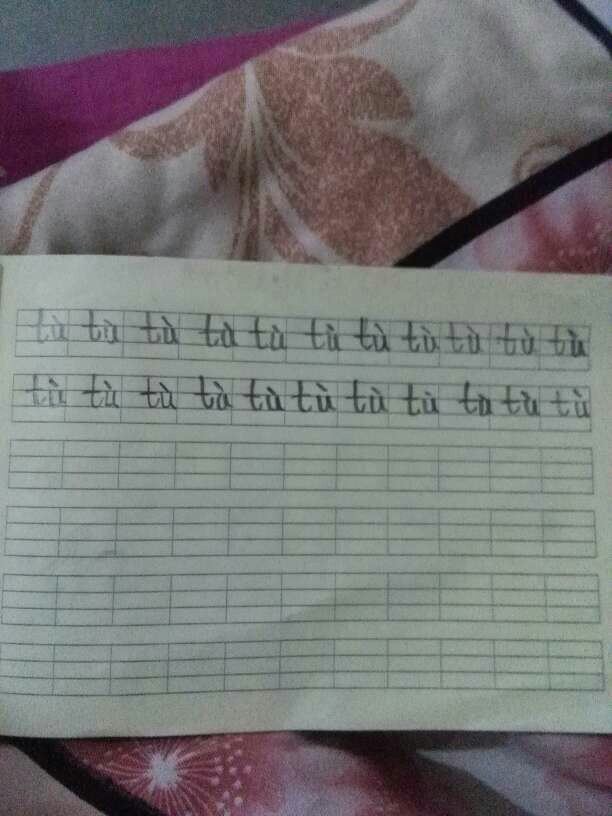 tù tù tù tù tù tù tù tù tù tù tù
tù tù tù tù tù tù tù tù tù tù tù